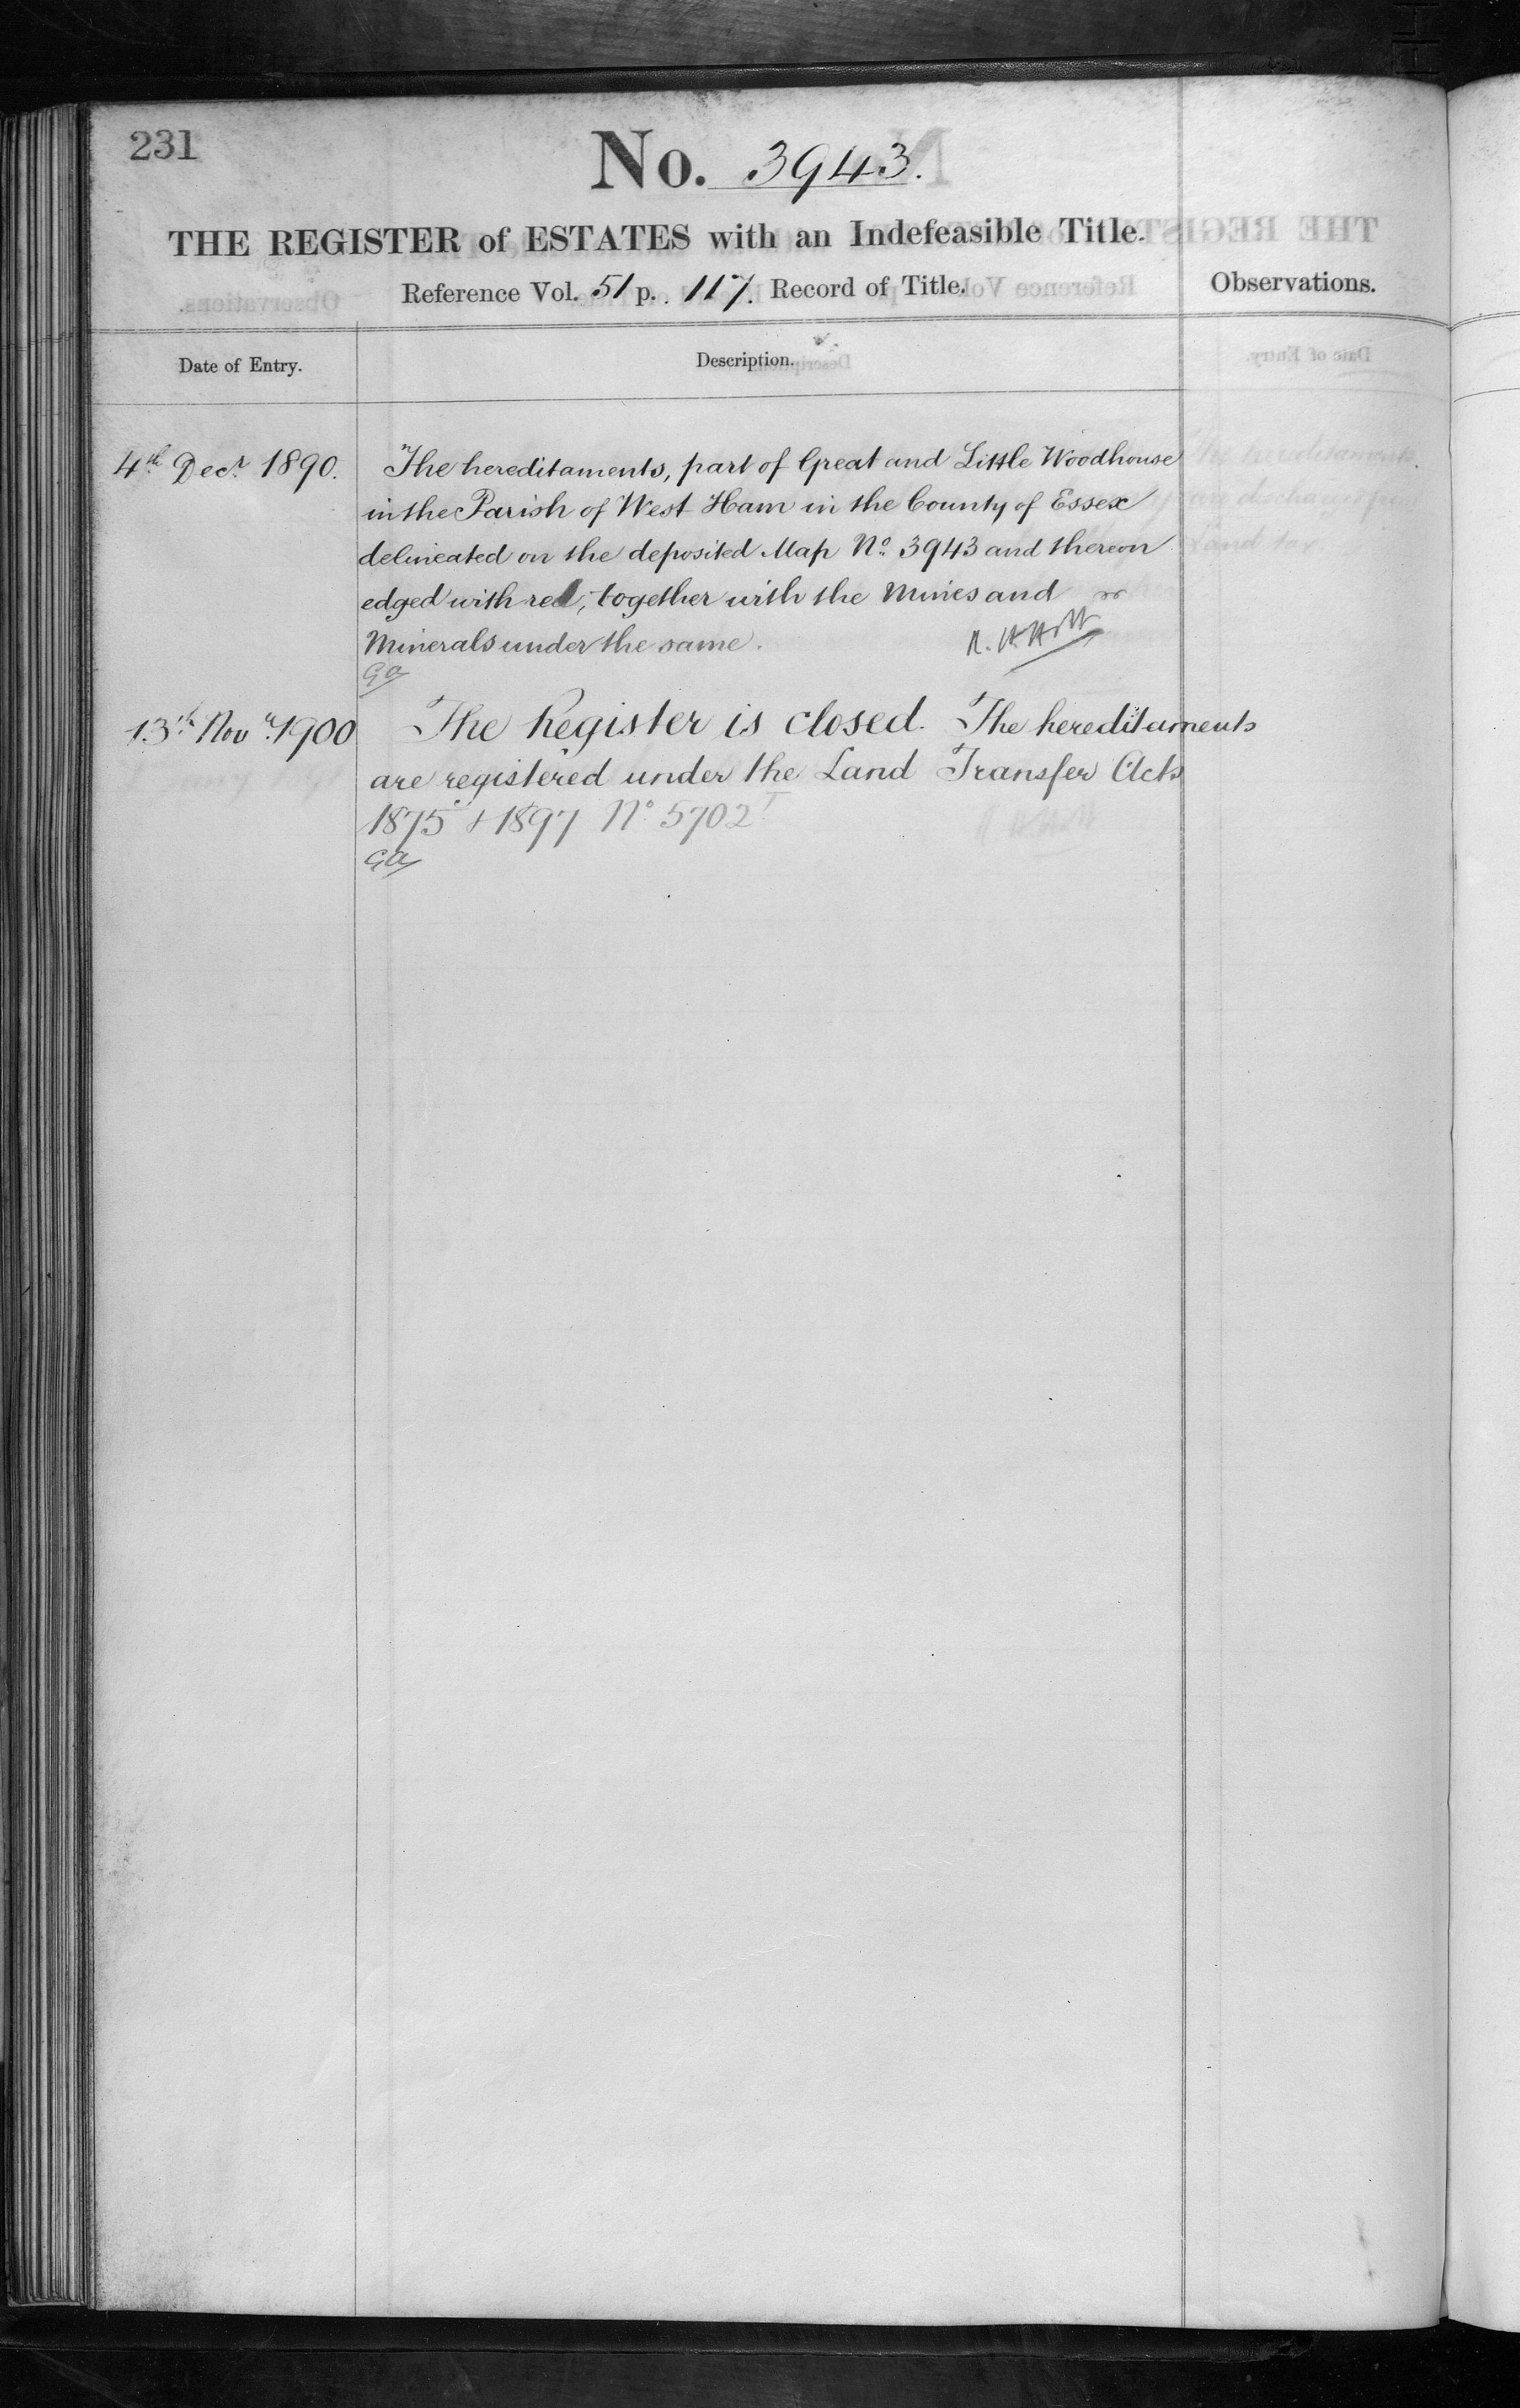 231
No. 3943.
THE REGISTER of ESTATES with an Indefeasible Title.
Reference Vol. 51 p. 117. Record of Title.
Observations.
Date of Entry.
Description.
4th Decr 1890.
The hereditaments, part of Great and Little Woodhouse
in the Parish of West Ham in the County of Essex
delineated on the deposited Map No 3943 and thereon
edged with red, together with the Mines and
Minerals under the same.
The hereditaments
are discharged from
Land tax.
GA
13th Novr 1900
The Register is closed. The hereditaments
are registered under the Land Transfer Acts
1875 & 1897 No 5702
GA